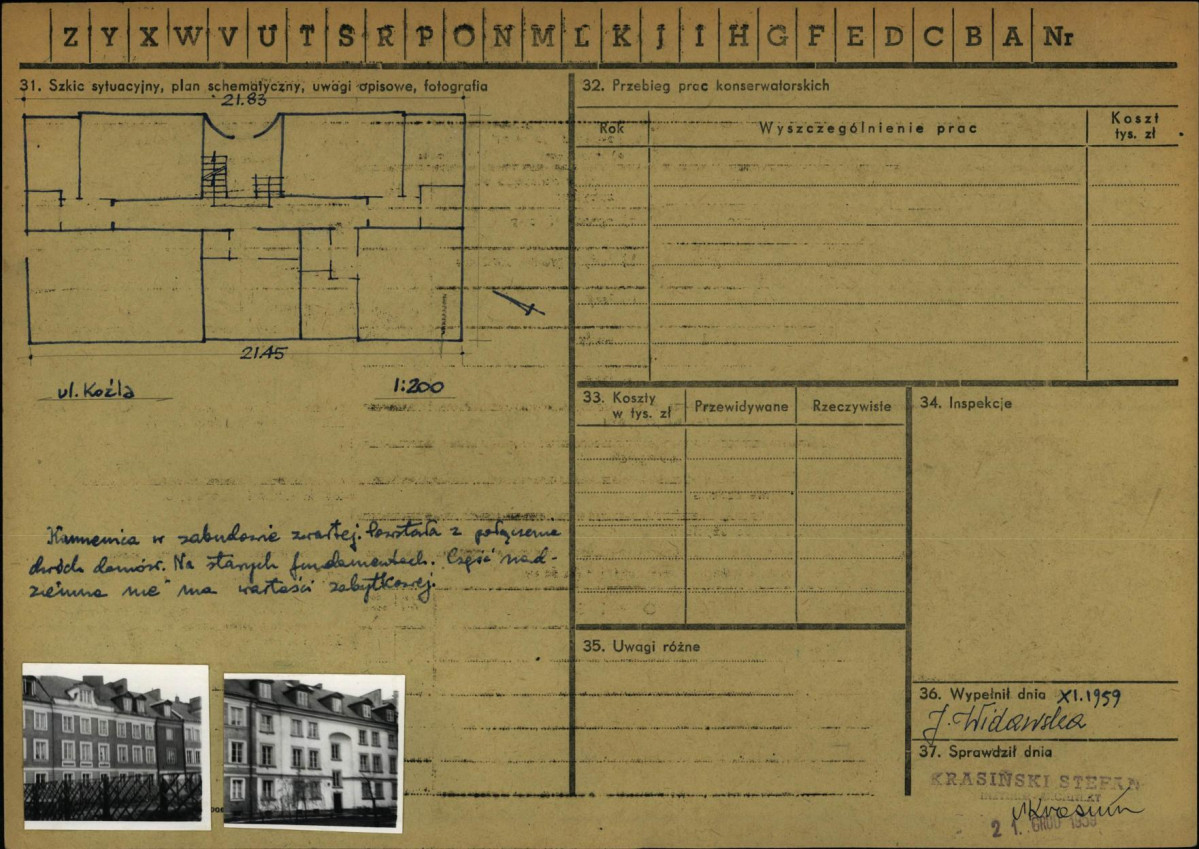 Z Y X W V U T S R P O N M L K J I H G F E D C B A Nr
31. Szkic sytuacyjny, plan schematyczny, uwagi opisowe, fotografia
21.83
21.45
ul. Koźla
1:200
Kamienica w zabudowie zwartej. Powstała z połączenia
dwóch domów. Na starych fundamentach. Część nad-
ziemna nie ma wartości zabytkowej.
32. Przebieg prac konserwatorskich
Rok
Wyszczególnienie prac
Koszt
tys. zł
33. Koszty
w tys. zł
Przewidywane
Rzeczywiste
34. Inspekcje
35. Uwagi różne
36. Wypełnił dnia XI.1959
J. Widawska
37. Sprawdził dnia
KRASIŃSKI STEFAN
21. GRUD 1959